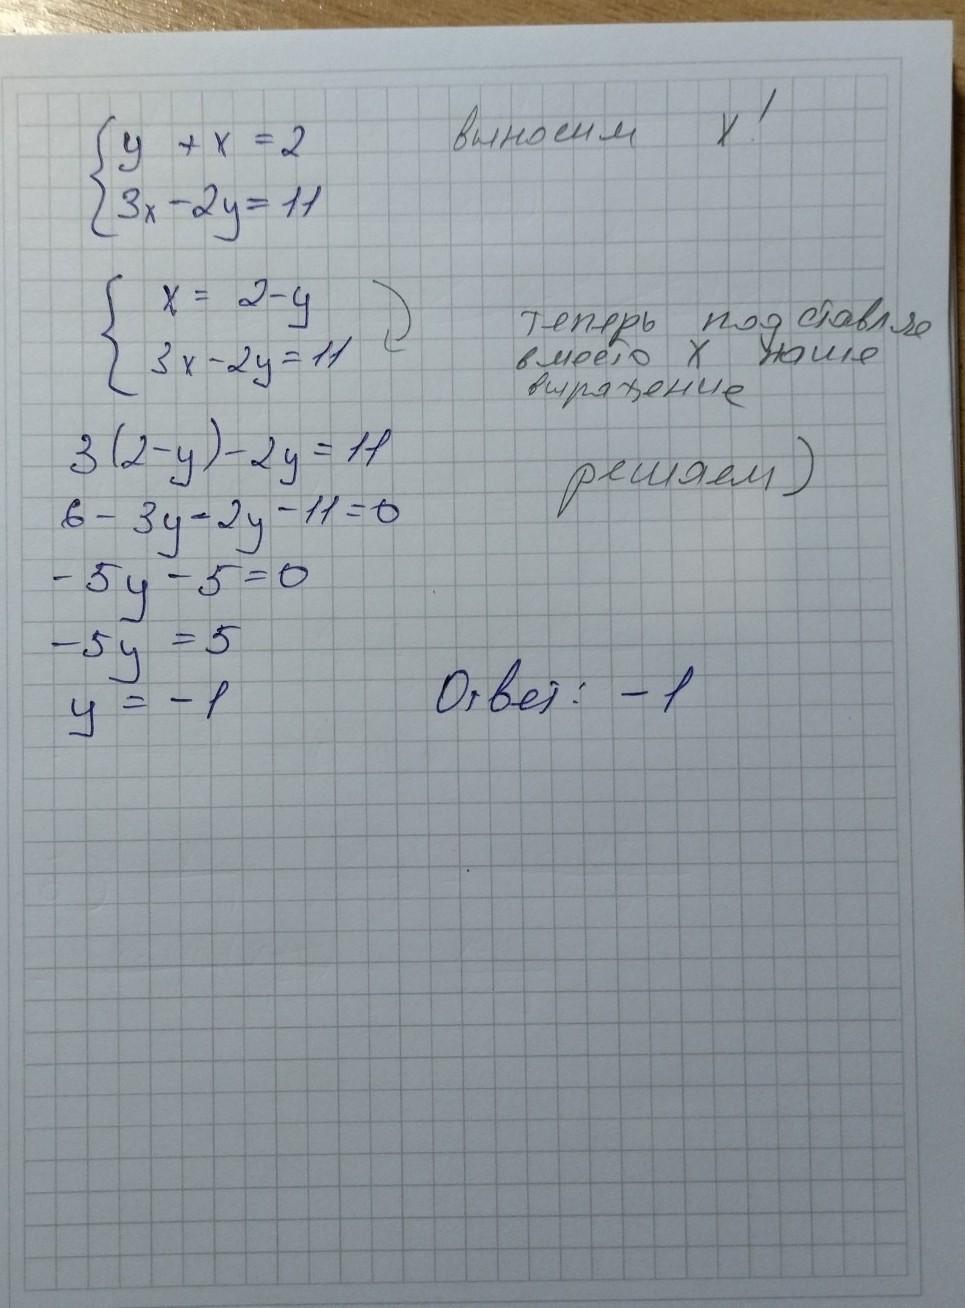 y + x = 2 выносим x!
3x - 2y = 11
x = 2 - y
3x - 2y = 11
теперь подставляе
вместо x наше
выражение
3(2 - y) - 2y = 11
решаем)
6 - 3y - 2y - 11 = 0
-5y - 5 = 0
-5y = 5
y = -1 Ответ: -1